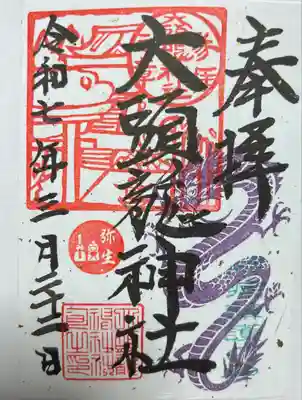 奉拝
大頭龍神社
令和七年三月二十一日
弥生